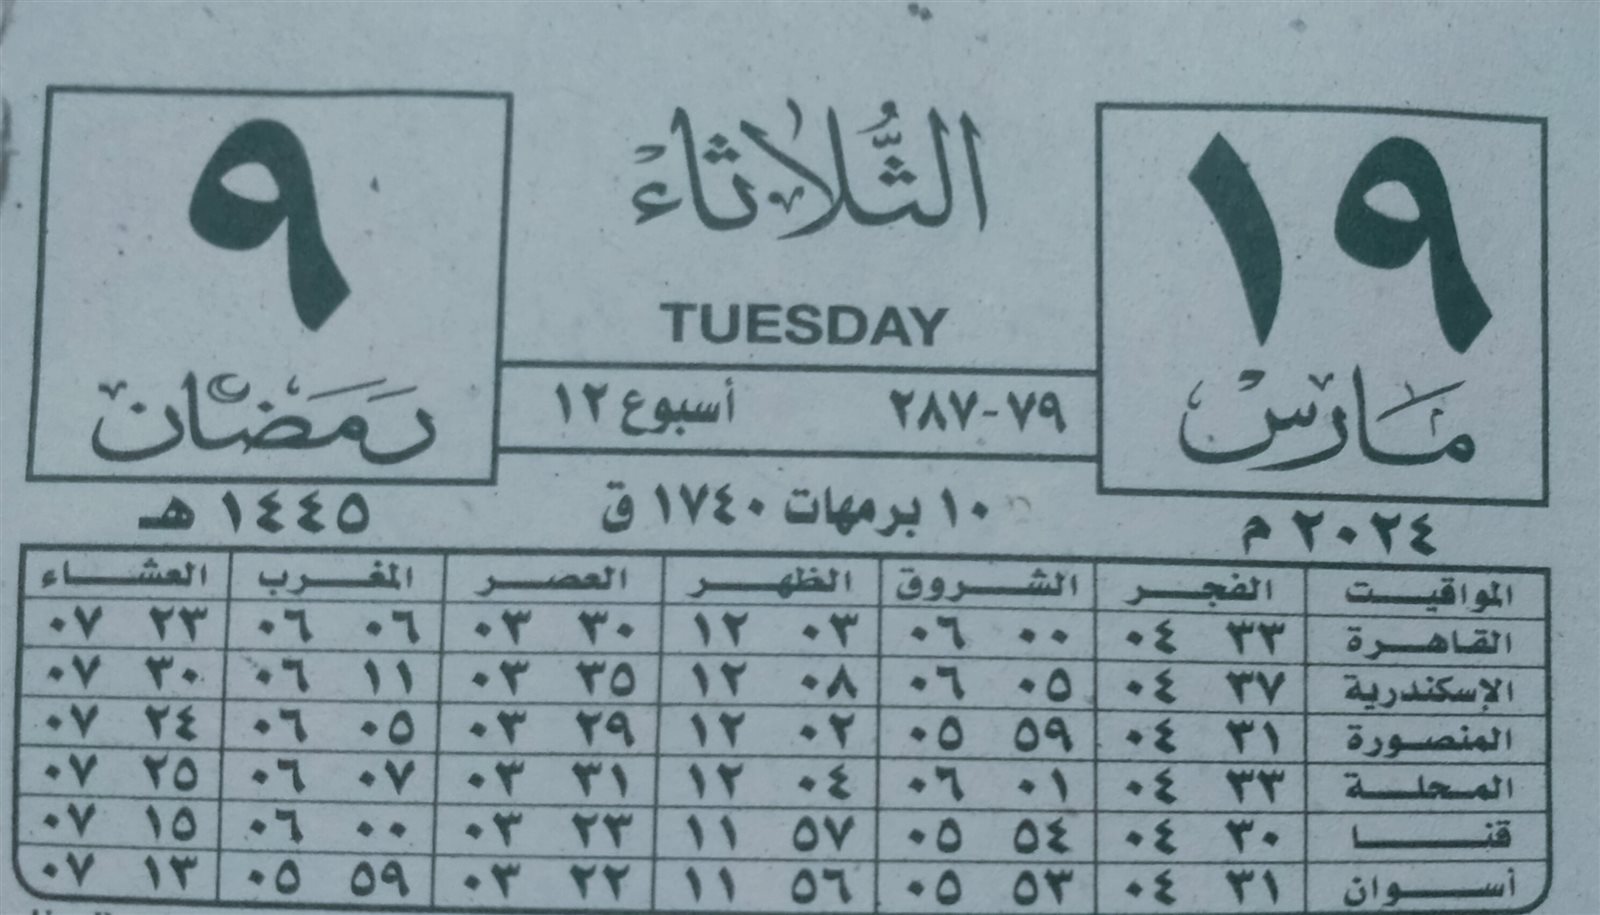 ١٩ الثُّلاثاء ٩
TUESDAY
مَارسْ ٢٨٧-٧٩ أسبوع ١٢ رَمَضَان
٢٠٢٤ م ١٠ برمهات ١٧٤٠ ق ١٤٤٥ هـ
المواقيت الفجر الشروق الظهر العصر المغرب العشاء
القاهرة ٣٣ ٠٤ ٠٠ ٠٦ ٠٣ ١٢ ٣٠ ٠٣ ٠٦ ٠٦ ٢٣ ٠٧
الإسكندرية ٣٧ ٠٤ ٠٥ ٠٦ ٠٨ ١٢ ٣٥ ٠٣ ١١ ٠٦ ٣٠ ٠٧
المنصورة ٣١ ٠٤ ٥٩ ٠٥ ٠٢ ١٢ ٢٩ ٠٣ ٠٥ ٠٦ ٢٤ ٠٧
المحلة ٣٣ ٠٤ ٠١ ٠٦ ٠٤ ١٢ ٣١ ٠٣ ٠٧ ٠٦ ٢٥ ٠٧
قنا ٣٠ ٠٤ ٥٤ ٠٥ ٥٧ ١١ ٢٣ ٠٣ ٠٠ ٠٦ ١٥ ٠٧
أسوان ٣١ ٠٤ ٥٣ ٠٥ ٥٦ ١١ ٢٢ ٠٣ ٥٩ ٠٥ ١٣ ٠٧